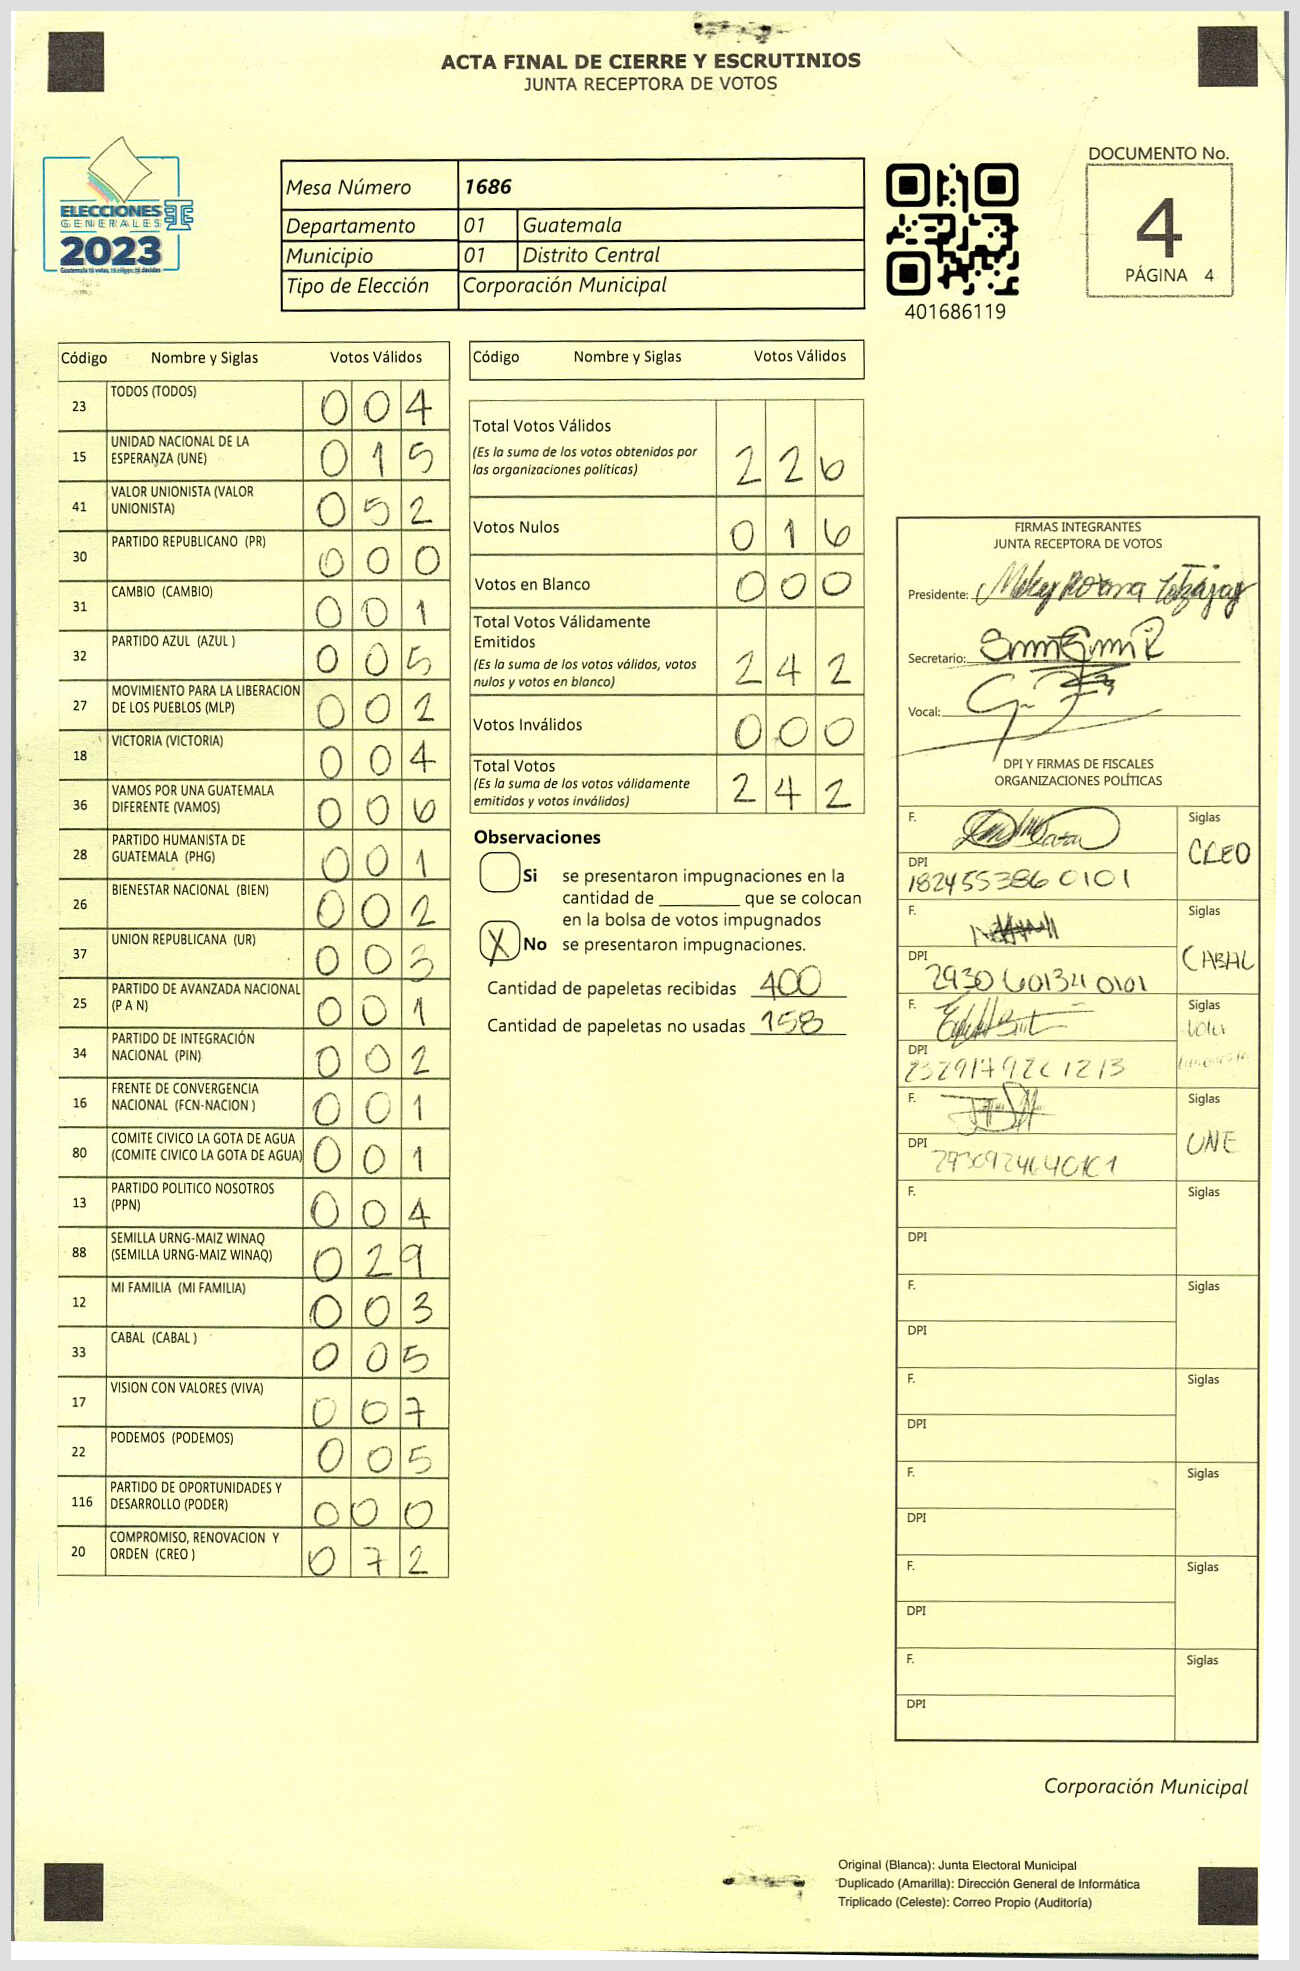 ACTA FINAL DE CIERRE Y ESCRUTINIOS
JUNTA RECEPTORA DE VOTOS
ELECCIONES
GENERALES
2023
Mesa Número 1686
Departamento 01 Guatemala
Municipio 01 Distrito Central
Tipo de Elección Corporación Municipal
401686119
DOCUMENTO No.
4
PÁGINA 4
Código Nombre y Siglas Votos Válidos
23 TODOS (TODOS) 0 0 4
15 UNIDAD NACIONAL DE LA
ESPERANZA (UNE) 0 1 5
41 VALOR UNIONISTA (VALOR
UNIONISTA) 0 5 2
30 PARTIDO REPUBLICANO (PR) 0 0 0
31 CAMBIO (CAMBIO) 0 0 1
32 PARTIDO AZUL (AZUL ) 0 0 5
27 MOVIMIENTO PARA LA LIBERACION
DE LOS PUEBLOS (MLP) 0 0 2
18 VICTORIA (VICTORIA) 0 0 4
36 VAMOS POR UNA GUATEMALA
DIFERENTE (VAMOS) 0 0 6
28 PARTIDO HUMANISTA DE
GUATEMALA (PHG) 0 0 1
26 BIENESTAR NACIONAL (BIEN) 0 0 2
37 UNION REPUBLICANA (UR) 0 0 3
25 PARTIDO DE AVANZADA NACIONAL
(P A N) 0 0 1
34 PARTIDO DE INTEGRACIÓN
NACIONAL (PIN) 0 0 2
16 FRENTE DE CONVERGENCIA
NACIONAL (FCN-NACION ) 0 0 1
80 COMITE CIVICO LA GOTA DE AGUA
(COMITE CIVICO LA GOTA DE AGUA) 0 0 1
13 PARTIDO POLITICO NOSOTROS
(PPN) 0 0 4
88 SEMILLA URNG-MAIZ WINAQ
(SEMILLA URNG-MAIZ WINAQ) 0 2 9
12 MI FAMILIA (MI FAMILIA) 0 0 3
33 CABAL (CABAL ) 0 0 5
17 VISION CON VALORES (VIVA) 0 0 7
22 PODEMOS (PODEMOS) 0 0 5
116 PARTIDO DE OPORTUNIDADES Y
DESARROLLO (PODER) 0 0 0
20 COMPROMISO, RENOVACION Y
ORDEN (CREO ) 0 7 2
Código Nombre y Siglas Votos Válidos
Total Votos Válidos
(Es la suma de los votos obtenidos por
las organizaciones políticas) 2 2 6
Votos Nulos 0 1 6
Votos en Blanco 0 0 0
Total Votos Válidamente
Emitidos
(Es la suma de los votos válidos, votos
nulos y votos en blanco) 2 4 2
Votos Inválidos 0 0 0
Total Votos
(Es la suma de los votos válidamente
emitidos y votos inválidos) 2 4 2
Observaciones
Si se presentaron impugnaciones en la
cantidad de ________ que se colocan
en la bolsa de votos impugnados
X No se presentaron impugnaciones.
Cantidad de papeletas recibidas 400
Cantidad de papeletas no usadas 158
FIRMAS INTEGRANTES
JUNTA RECEPTORA DE VOTOS
Presidente:
Secretario:
Vocal:
DPI Y FIRMAS DE FISCALES
ORGANIZACIONES POLÍTICAS
F. Siglas
CREO
DPI
182455386 0101
F. Siglas
CABAL
DPI
2930 60134 0101
F. Siglas
Valor
DPI
F. Siglas
UNE
DPI
F. Siglas
DPI
F. Siglas
DPI
F. Siglas
DPI
F. Siglas
DPI
F. Siglas
DPI
F. Siglas
DPI
Corporación Municipal
Original (Blanca): Junta Electoral Municipal
Duplicado (Amarilla): Dirección General de Informática
Triplicado (Celeste): Correo Propio (Auditoría)